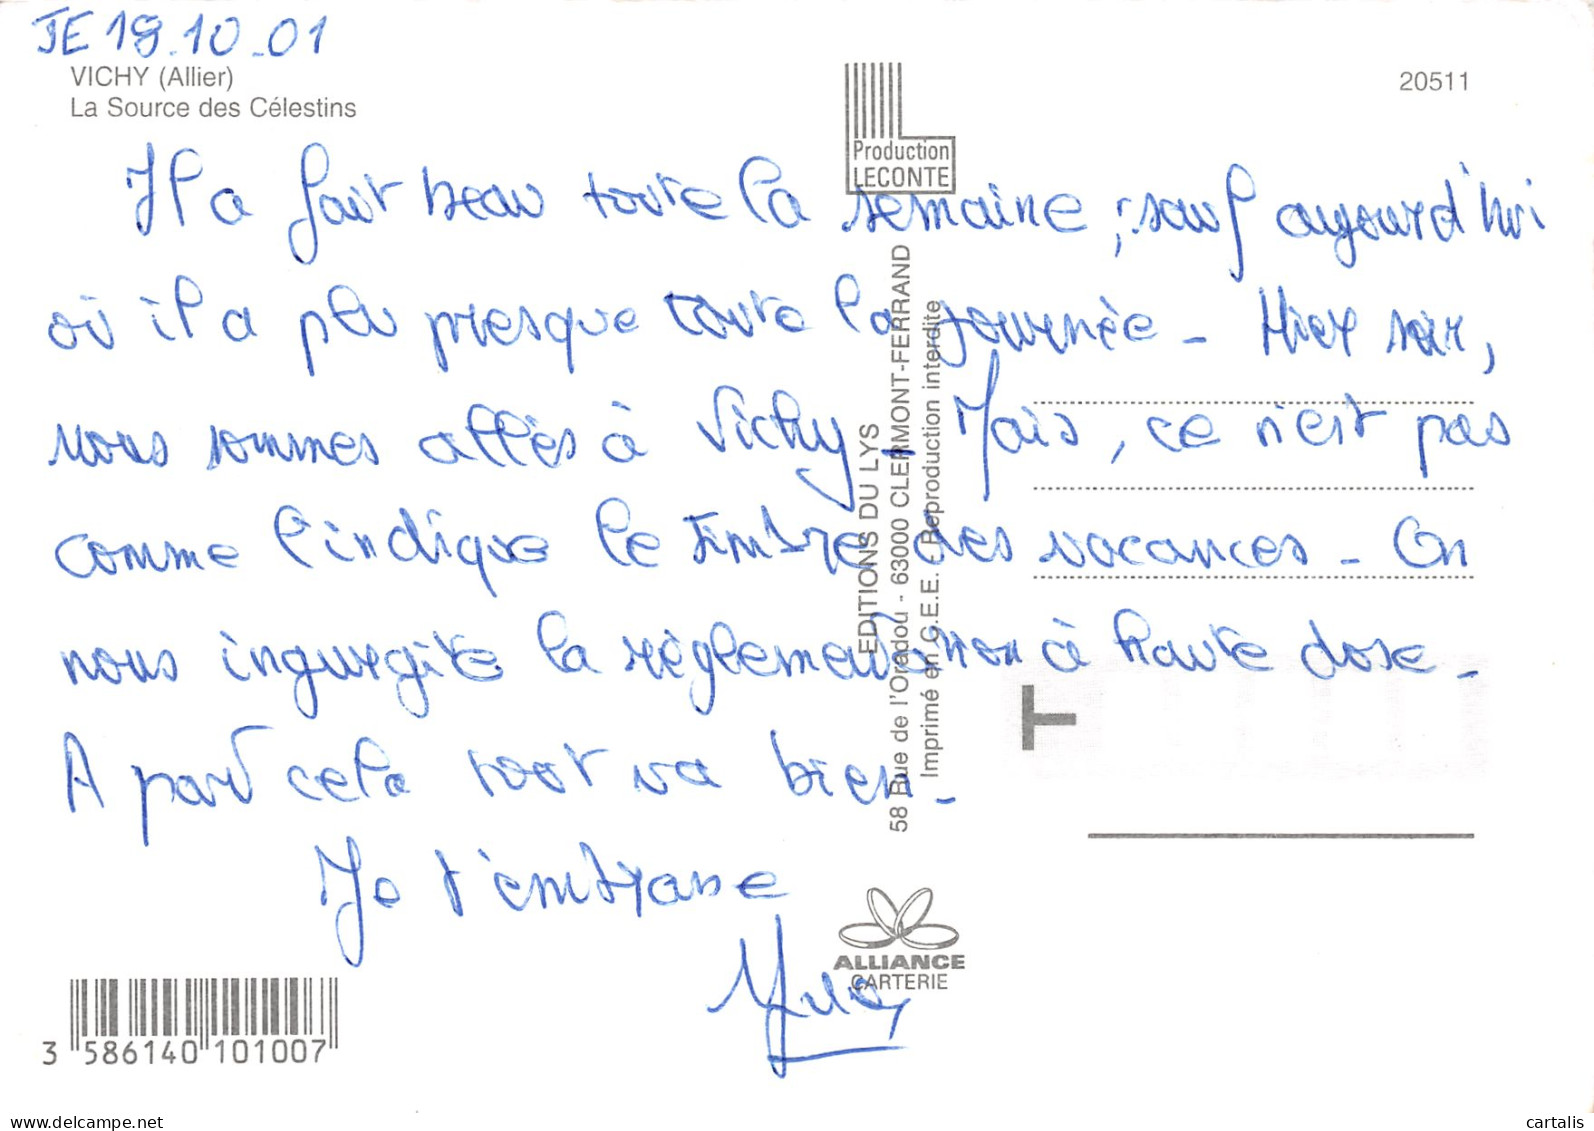 JE 18.10.01
VICHY (Allier)
La Source des Célestins
20511
Production
LECONTE
Il a fait beau toute la semaine, sauf aujourd'hui
où il a plu presque toute la journée - Hier soir,
nous sommes allés à Vichy - Mais, ce n'est pas
comme l'indique le timbre des vacances - On
nous ingurgite la réglementation à haute dose -
A part cela tout va bien -
Je t'embrasse
EDITIONS DU LYS
58 Rue de l'Oradou - 63000 CLERMONT-FERRAND
Imprimé en C.E.E. - Reproduction interdite
T
ALLIANCE
CARTERIE
3 586140 101007
www.delcampe.net
cartalis